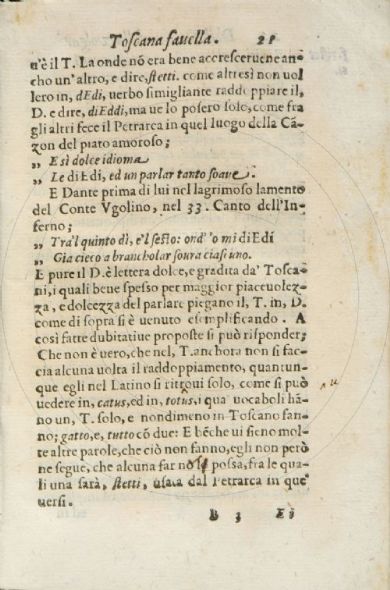 Toscana fauella. 21
n'è il T. La onde nō era bene accrescerueneancho
cho un'altro, e dire, stetti. come altresì non uol
lero in, dEdi, uerbo simigliante raddoppiare il,
D. e dire, diEddi, ma ue lo posero solo, come fra
gli altri fece il Petrarca in quel luogo della Cā-
zon del piato amoroso;
„ E sì dolce idioma
„ Le diEdi, ed un parlar tanto soaue.
E Dante prima di lui nel lagrimoso lamento
del Conte Vgolino, nel 33. Canto dell'In-
ferno;
„ Tra'l quinto dì, e'l sesto: ond'o mi diEdi
„ Gia cieco a brancholar soura ciasiuno.
E pure il D. è lettera dolce, e gradita da' Tosca-
ni, i quali bene spesso per maggior piaceuolez-
za, e dolcezza del parlare piegano il, T. in, D.
come di sopra si è uenuto esemplificando. A
così fatte dubitatiue proposte si può risponder;
Che non è uero, che nel, T. anchora non si fac-
cia alcuna uolta il raddoppiamento, quantun-
que egli nel Latino si ritroui solo, come si può
uedere in, catus, ed in, totus, i qua' uocaboli hā-
no un, T. solo, e nondimeno in Toscano fan-
no; gatto, e, tutto cō due: E bēche ui sieno mol-
te altre parole, che ciò non fanno, egli non però
ne segue, che alcuna far no'l possa, fra le qua-
li una sarà, stetti, usata dal Petrarca in que'
uersi.
B 3 Ei